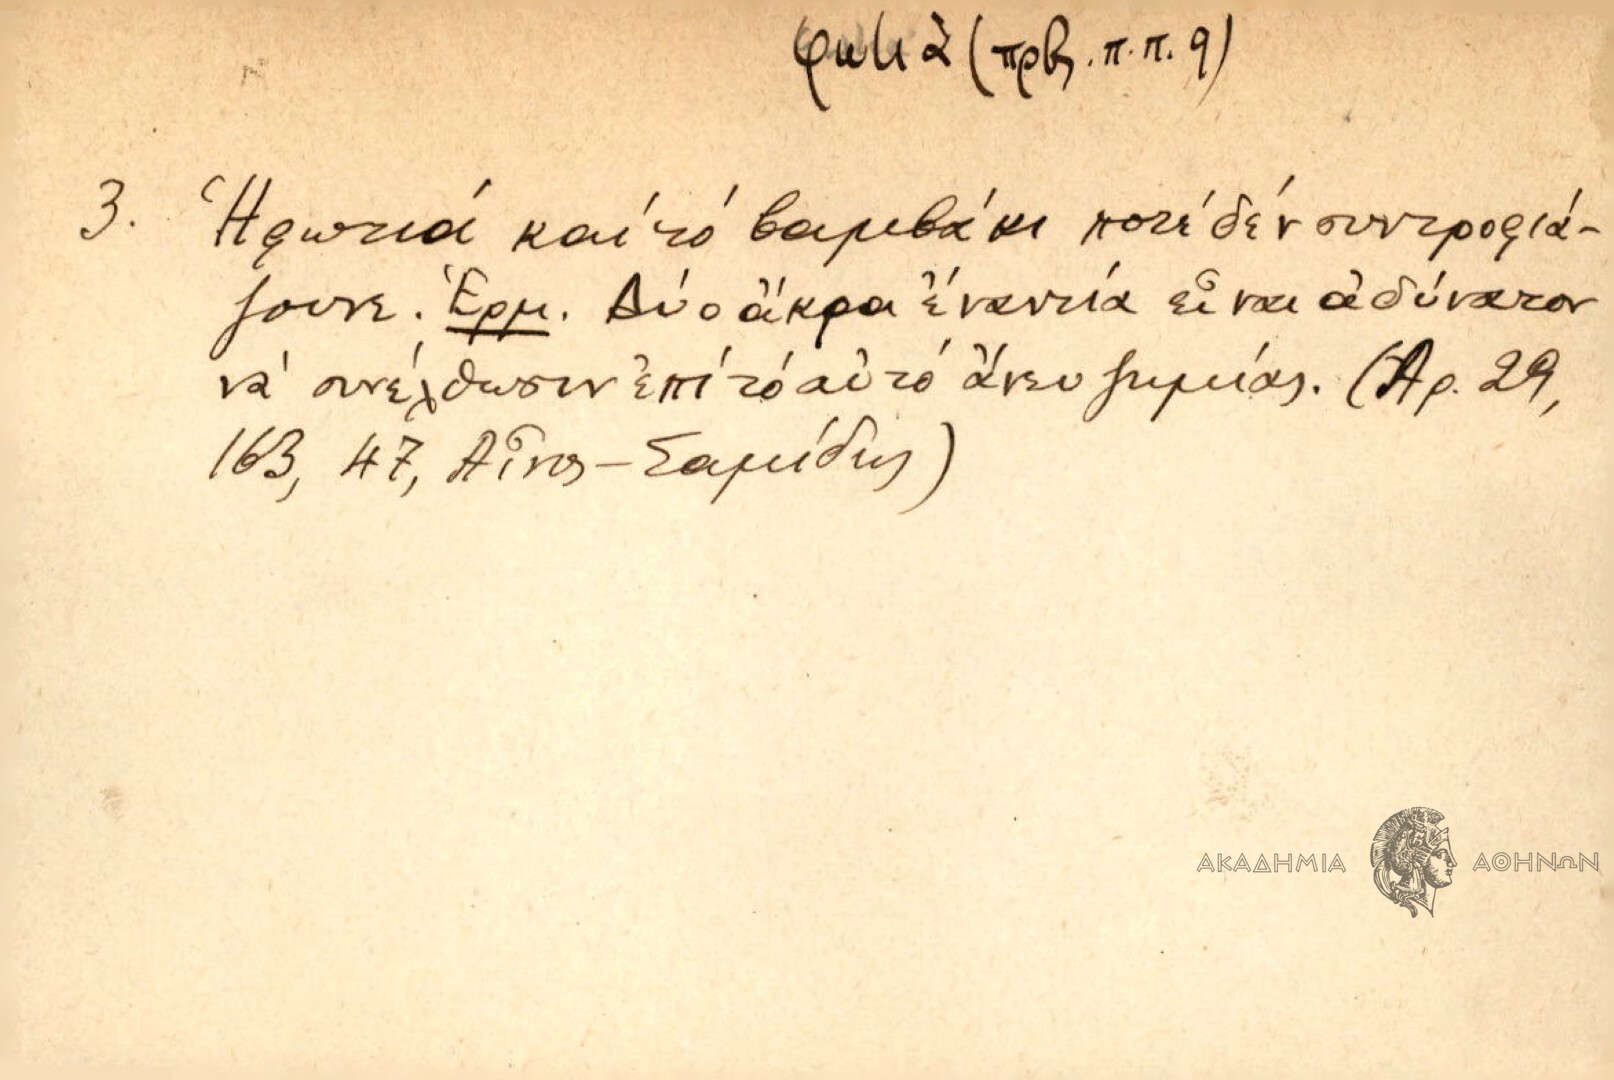 φωτιὰ (πρβ. π.π. 9)
3. Ἡ φωτιά καί τό βαμβάκι ποτέ δέν συντροφιά-
ζουνε. Ἑρμ. Δύο ἄκρα ἐναντία εἶναι ἀδύνατον
νά συνέλθωσιν ἐπί τό αὐτό ἄνευ ζημίας. (Ἀρ. 29,
163, 47, Αἶνος – Σαμίδης)
ΑΚΑΔΗΜΙΑ ΑΘΗΝΩΝ